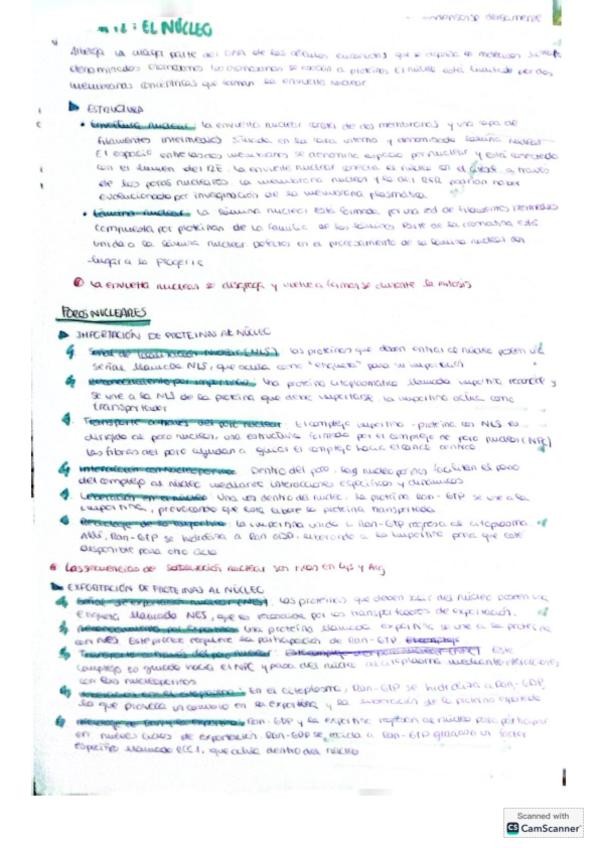 : EL NÚCLEO
Alberga la mayor parte del DNA de las células eucariotas que se dispone en moléculas
denominadas cromosomas los cromosomas se asocian a proteínas El núcleo está limitado por dos
membranas concéntricas que forman la envuelta nuclear
ESTRUCTURA
• Envoltura nuclear: la envuelta nuclear consta de dos membranas y una capa de
filamentos intermedios situada en la cara interna y denominada lámina nuclear
El espacio entre las dos membranas se denomina espacio perinuclear y está conectado
con el lumen del RE. La envuelta nuclear conecta el núcleo con el citosol a través
de los poros nucleares. La membrana nuclear y la del RER podrían haber
evolucionado por invaginación de la membrana plasmática.
• Lámina nuclear: La lámina nuclear está formada por una red de filamentos intermedios
compuesta por proteínas de la familia de las láminas Parte de la cromatina está
unida a la lámina nuclear defectos en el procesamiento de la lámina nuclear dan
lugar a la Progeria
La envuelta nuclear se disgrega y vuelve a formarse durante la mitosis
POROS NUCLEARES
IMPORTACIÓN DE PROTEINAS AL NÚCLEO
Señal de localización nuclear (NLS): las proteínas que deben entrar al núcleo poseen una
señal llamada NLS, que actúa como "etiqueta" para su importación
Reconocimiento por importina: Una proteína citoplasmática llamada importina reconoce y
se une a la NLS de la proteína que debe importarse. la importina actúa como
transportador
Transporte a través del poro nuclear: El complejo importina - proteína con NLS es
dirigido al poro nuclear, una estructura formada por el complejo de poro nuclear (NPC)
las fibras del poro ayudan a guiar el complejo hacia el canal central
Interacción con nucleoporinas: Dentro del poro, las nucleoporinas facilitan el paso
del complejo al núcleo mediante interacciones específicas y dinámicas
Liberación en el núcleo: Una vez dentro del núcleo, la proteína Ran-GTP se une a la
importina, provocando que esta libere la proteína transportada
Reciclaje de la importina: la importina unida a Ran-GTP regresa al citoplasma
Allí, Ran-GTP se hidroliza a Ran GDP, liberando a la importina para que esté
disponible para otro ciclo
Las secuencias de localización nuclear son ricas en Lys y Arg
EXPORTACIÓN DE PROTEINAS AL NÚCLEO
Señal de exportación nuclear (NES): Las proteínas que deben salir del núcleo poseen una
etiqueta llamada NES, que es reconocida por los transportadores de exportación.
Reconocimiento por exportina: Una proteína llamada exportina se une a la proteína
con NES Este proceso requiere la participación de Ran-GTP
Transporte a través del poro nuclear (NPC): Este
complejo es guiado hacia el NPC y pasa del núcleo al citoplasma mediante interacciones
con las nucleoporinas
Liberación en el citoplasma: En el citoplasma, Ran-GTP se hidroliza a Ran-GDP,
lo que provoca un cambio en la exportina y la liberación de la proteína exportada
Reciclaje de Ran y la exportina: Ran-GDP y la exportina regresan al núcleo para participar
en nuevos ciclos de exportación. Ran-GDP se recicla a Ran-GTP gracias a un factor
específico llamado RCC1, que actúa dentro del núcleo
Scanned with
CS CamScanner